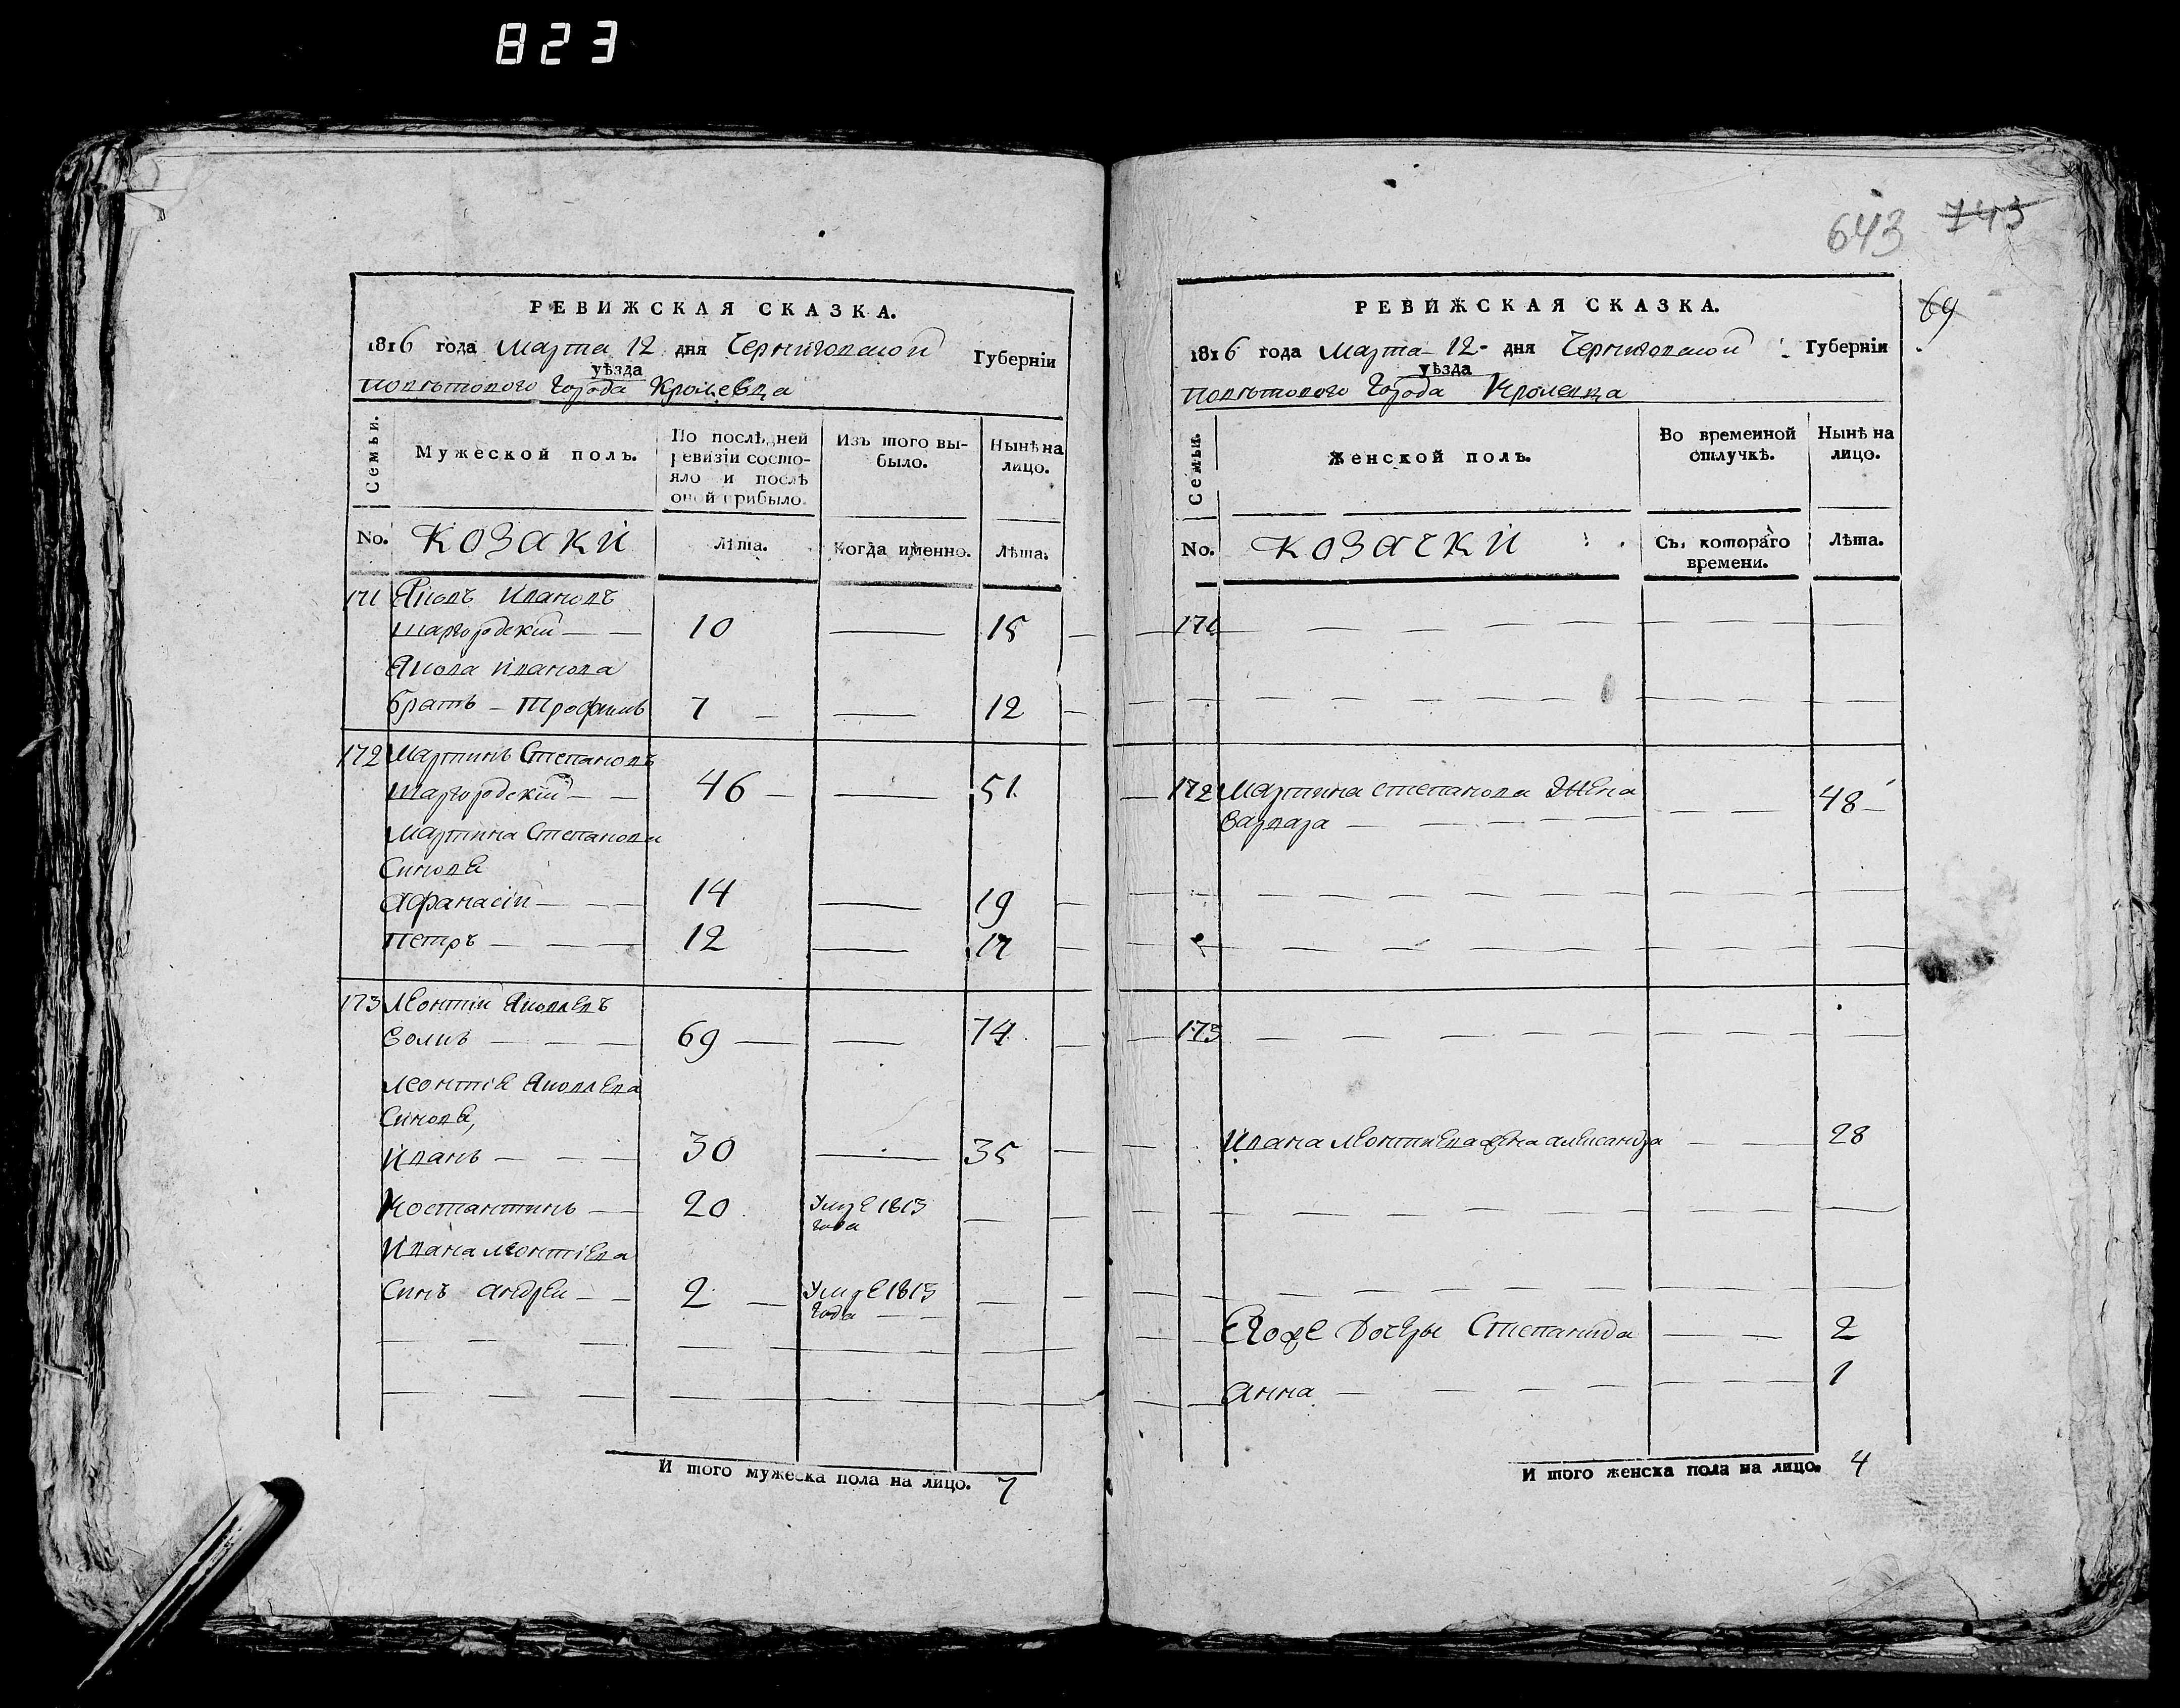 823
643 743
69
РЕВИЖСКАЯ СКАЗКА.
1816 года Марта 12 дня Черниговской Губернiи
уѣзда
поветового города Кролевца
Семьи.
Мужеской полъ.
По послѣдней ревизiи состо-
яло и послѣ
оной прибыло.
Изъ того вы-
было.
Нынѣ на
лицо.
No.
КОЗАКИ
Лѣта.
Когда именно.
Лѣта.
171 Яковъ Ивановъ
Шаргородскiй 10 15
Якова Иванова
братъ Трофимъ 7 12
172 Мартинъ Степановъ
Шаргородскiй 46 51
Мартина Степанова
Синове
Афанасiй 14 19
Петръ 12 17
173 Леонтiй Яковлевъ
69 74
Леонтiя Яковлева
Синове,
Иванъ 30 35
Костантинъ 20 Умре 1813
года
Ивана Леонтiева
Синъ Андрей 2 Умре 1813
года
И того мужеска пола на лицо. 7
РЕВИЖСКАЯ СКАЗКА.
1816 года Марта 12 дня Черниговской Губернiи
уѣзда
поветового города Кролевца
Семьи.
Женской полъ.
Во временной
отлучкѣ.
Нынѣ на
лицо.
No.
КОЗАЧКИ
Съ котораго
времени.
Лѣта.
171
172 Мартина Степанова Жена
Варвара 48
173
Ивана Леонтиева жена Александра 28
Егоже Дочеры Степанида 2
Анна 1
И того женска пола на лицо. 4